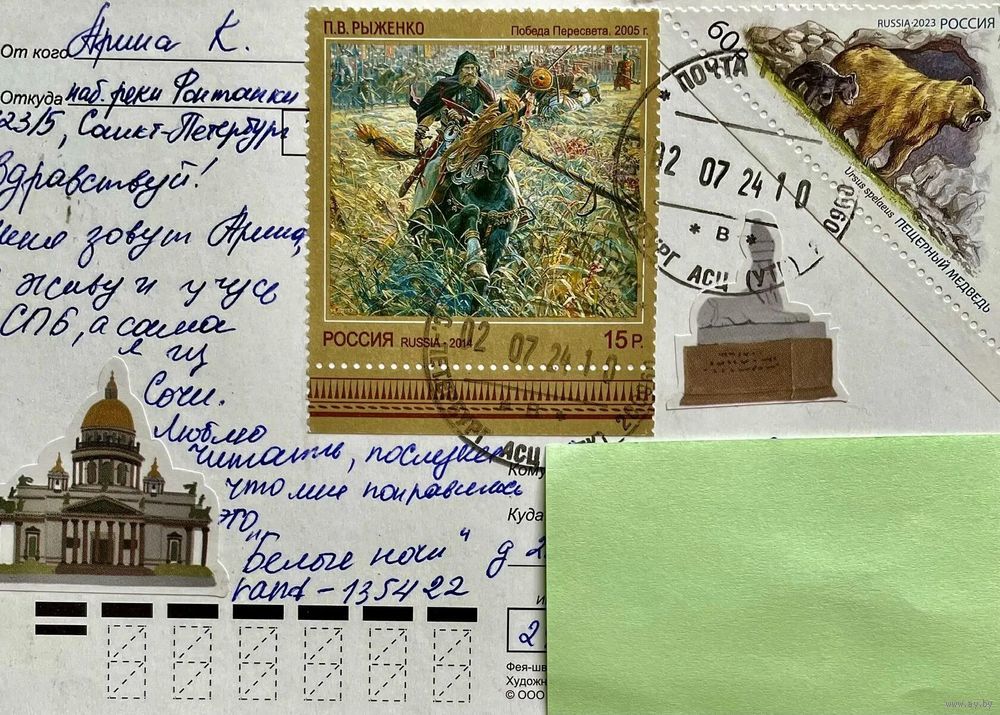 От кого Арина К.
Откуда наб. реки Фонтанки
23/5, Санкт-Петербург
Здравствуй!
Меня зовут Арина,
живу и учусь
СПб, а сама
я из
Сочи.
Люблю
читать,
что мне понравилось
это
"Белые ночи"
rand-135422
П.В. РЫЖЕНКО
Победа Пересвета. 2005 г.
РОССИЯ RUSSIA · 2014 15 Р.
RUSSIA·2023 РОССИЯ
60
Ursus spelaeus ПЕЩЕРНЫЙ МЕДВЕДЬ
* ПОЧТА
02 07 24 10
* В *
АСЦ
02 07 24 10
АСЦ
Кому
Куда
д 2
2
Фея-шв
Художн
© ООО
www.ay.by